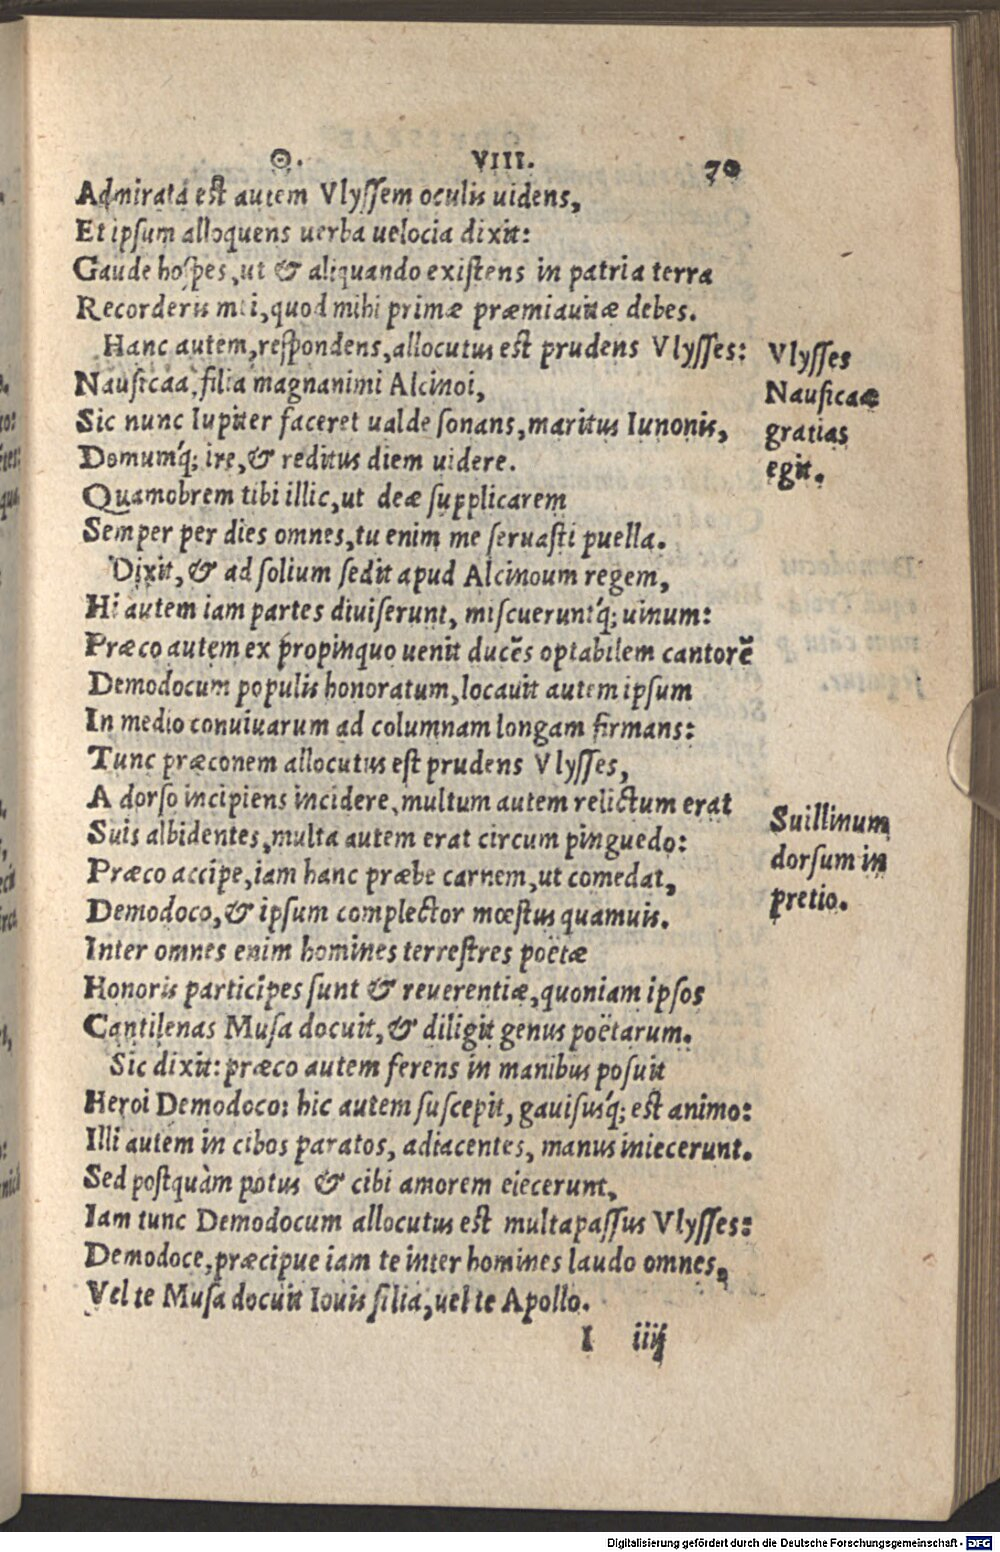 Θ. VIII. 70
Admirata est autem Vlyssem oculis uidens,
Et ipsum alloquens uerba uelocia dixit:
Gaude hospes, ut & aliquando existens in patria terra
Recorderis mei, quod mihi primæ præmia uitæ debes.
Hanc autem, respondens, allocutus est prudens Vlysses:
Nausicaa, filia magnanimi Alcinoi,
Sic nunc Iupiter faceret ualde sonans, maritus Iunonis,
Domumq́; ire, & reditus diem uidere.
Quamobrem tibi illic, ut deæ supplicarem
Semper per dies omnes, tu enim me seruasti puella.
Dixit, & ad solium sedit apud Alcinoum regem,
Hi autem iam partes diuiserunt, miscueruntq́; uinum:
Præco autem ex propinquo uenit ducẽs optabilem cantorẽ
Demodocum populis honoratum, locauit autem ipsum
In medio conuiuarum ad columnam longam firmans:
Tunc præconem allocutus est prudens Vlysses,
A dorso incipiens incidere, multum autem relictum erat
Suis albidentes, multa autem erat circum pinguedo:
Præco accipe, iam hanc præbe carnem, ut comedat,
Demodoco, & ipsum complector mœstus quamuis.
Inter omnes enim homines terrestres poëtæ
Honoris participes sunt & reuerentiæ, quoniam ipsos
Cantilenas Musa docuit, & diligit genus poëtarum.
Sic dixit: præco autem ferens in manibus posuit
Heroi Demodoco: hic autem suscepit, gauisusq́; est animo:
Illi autem in cibos paratos, adiacentes, manus iniecerunt.
Sed postquàm potus & cibi amorem eiecerunt,
Iam tunc Demodocum allocutus est multapassus Vlysses:
Demodoce, præcipue iam te inter homines laudo omnes,
Vel te Musa docuit Iouis filia, uel te Apollo.
I iiij
Vlysses
Nausicaæ
gratias
egit.
Suillinum
dorsum in
pretio.
Digitalisierung gefördert durch die Deutsche Forschungsgemeinschaft - DFG